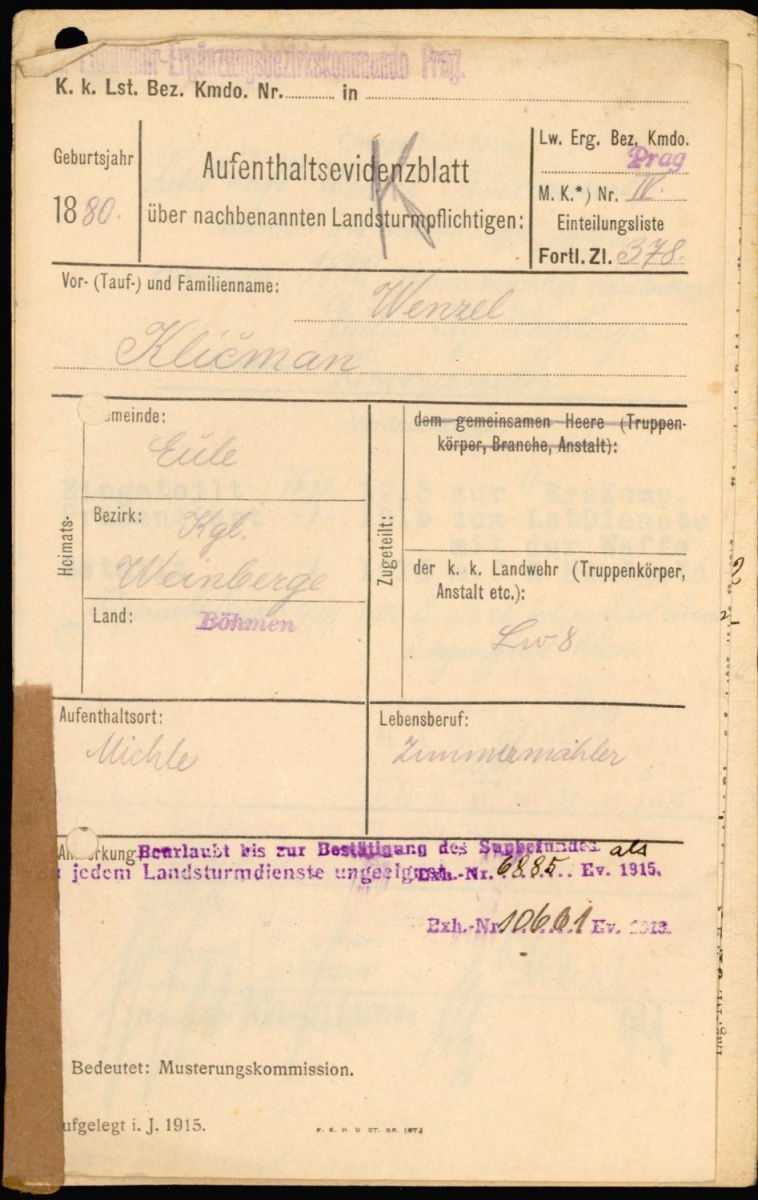 Landwehr-Ergänzungsbezirkskommando Prag.
K. k. Lst. Bez. Kmdo. Nr. in
Geburtsjahr
1880.
Aufenthaltsevidenzblatt
über nachbenannten Landsturmpflichtigen:
K
Lw. Erg. Bez. Kmdo.
Prag
M. K.*) Nr. IV.
Einteilungsliste
Fortl. Zl. 378.
Vor- (Tauf-) und Familienname: Wenzel
Kličman
Heimats-
emeinde:
Eule
Bezirk: Kgl.
Weinberge
Land: Böhmen
Zugeteilt:
dem gemeinsamen Heere (Truppen-
körper, Branche, Anstalt):
der k. k. Landwehr (Truppenkörper,
Anstalt etc.):
Lw 8
Aufenthaltsort:
Michle
Lebensberuf:
Zimmermahler
Beurlaubt bis zur Bestätigung des als
jedem Landsturmdienste ungeeignet Exh.-Nr. 6885 Ev. 1915.
Exh.-Nr. 10661 Ev.
Bedeutet: Musterungskommission.
ufgelegt i. J. 1915.